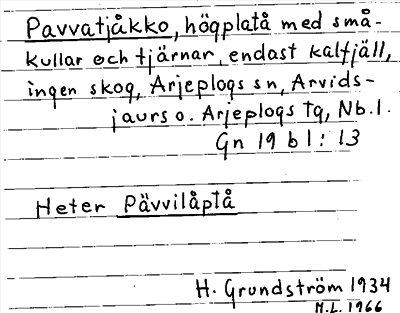 Pavvatjåkko, högplatå med små-
kullar och tjärnar, endast kalfjäll,
ingen skog, Arjeplogs sn, Arvids-
jaurs o. Arjeplogs tg, Nb.l.
Gn 19 b l : 13
Heter Pävvilåptå
H. Grundström 1934
M.L. 1966